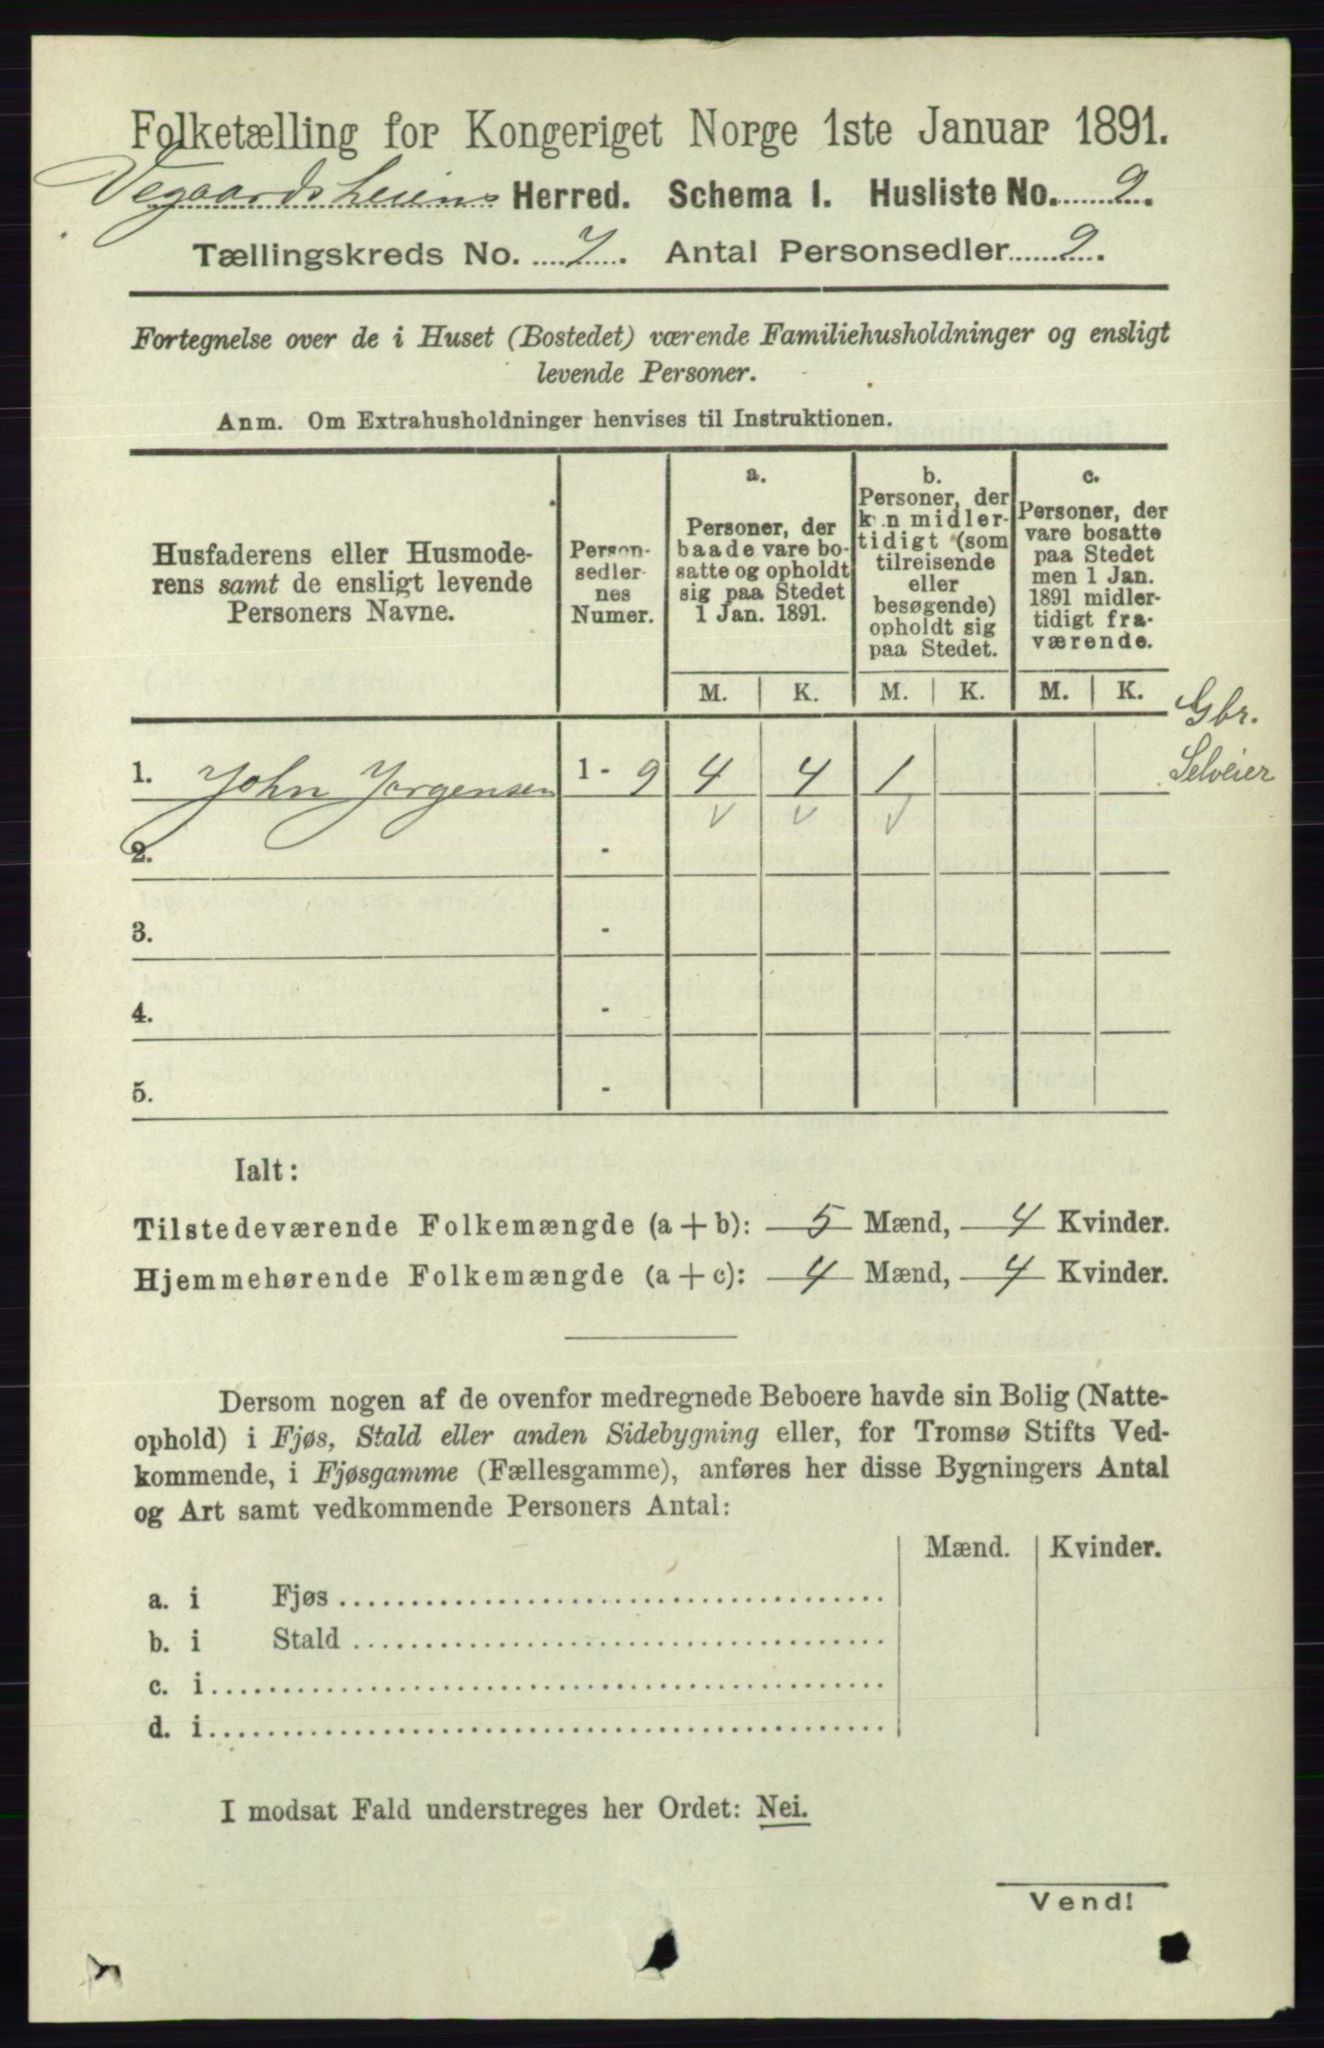 Folketælling for Kongeriget Norge 1ste Januar 1891.
Vegaardsheiens Herred. Schema I. Husliste No. 9.
Tællingskreds No. 7. Antal Personsedler 9.
Fortegnelse over de i Huset (Bostedet) værende Familiehusholdninger og ensligt
levende Personer.
Anm. Om Extrahusholdninger henvises til Instruktionen.
Husfaderens eller Husmode-
rens samt de ensligt levende
Personers Navne.
Person-
sedler-
nes
Numer.
a.
Personer, der
baade vare bo-
satte og opholdt
sig paa Stedet
1 Jan. 1891.
b.
Personer, der
kun midler-
tidigt (som
tilreisende
eller
besøgende)
opholdt sig
paa Stedet.
c.
Personer, der
vare bosatte
paa Stedet
men 1 Jan.
1891 midler-
tidigt fra-
værende.
M. K. M. K. M. K.
Gbr.
Selveier
1. John Jorgensen 1 - 9 4 4 1
2. -
3. -
4. -
5. -
Ialt:
Tilstedeværende Folkemængde (a + b): 5 Mænd, 4 Kvinder.
Hjemmehørende Folkemængde (a + c): 4 Mænd, 4 Kvinder.
Dersom nogen af de ovenfor medregnede Beboere havde sin Bolig (Natte-
ophold) i Fjøs, Stald eller anden Sidebygning eller, for Tromsø Stifts Ved-
kommende, i Fjøsgamme (Fællesgamme), anføres her disse Bygningers Antal
og Art samt vedkommende Personers Antal:
Mænd. Kvinder.
a. i Fjøs
b. i Stald
c. i
d. i
I modsat Fald understreges her Ordet: Nei.
Vend!